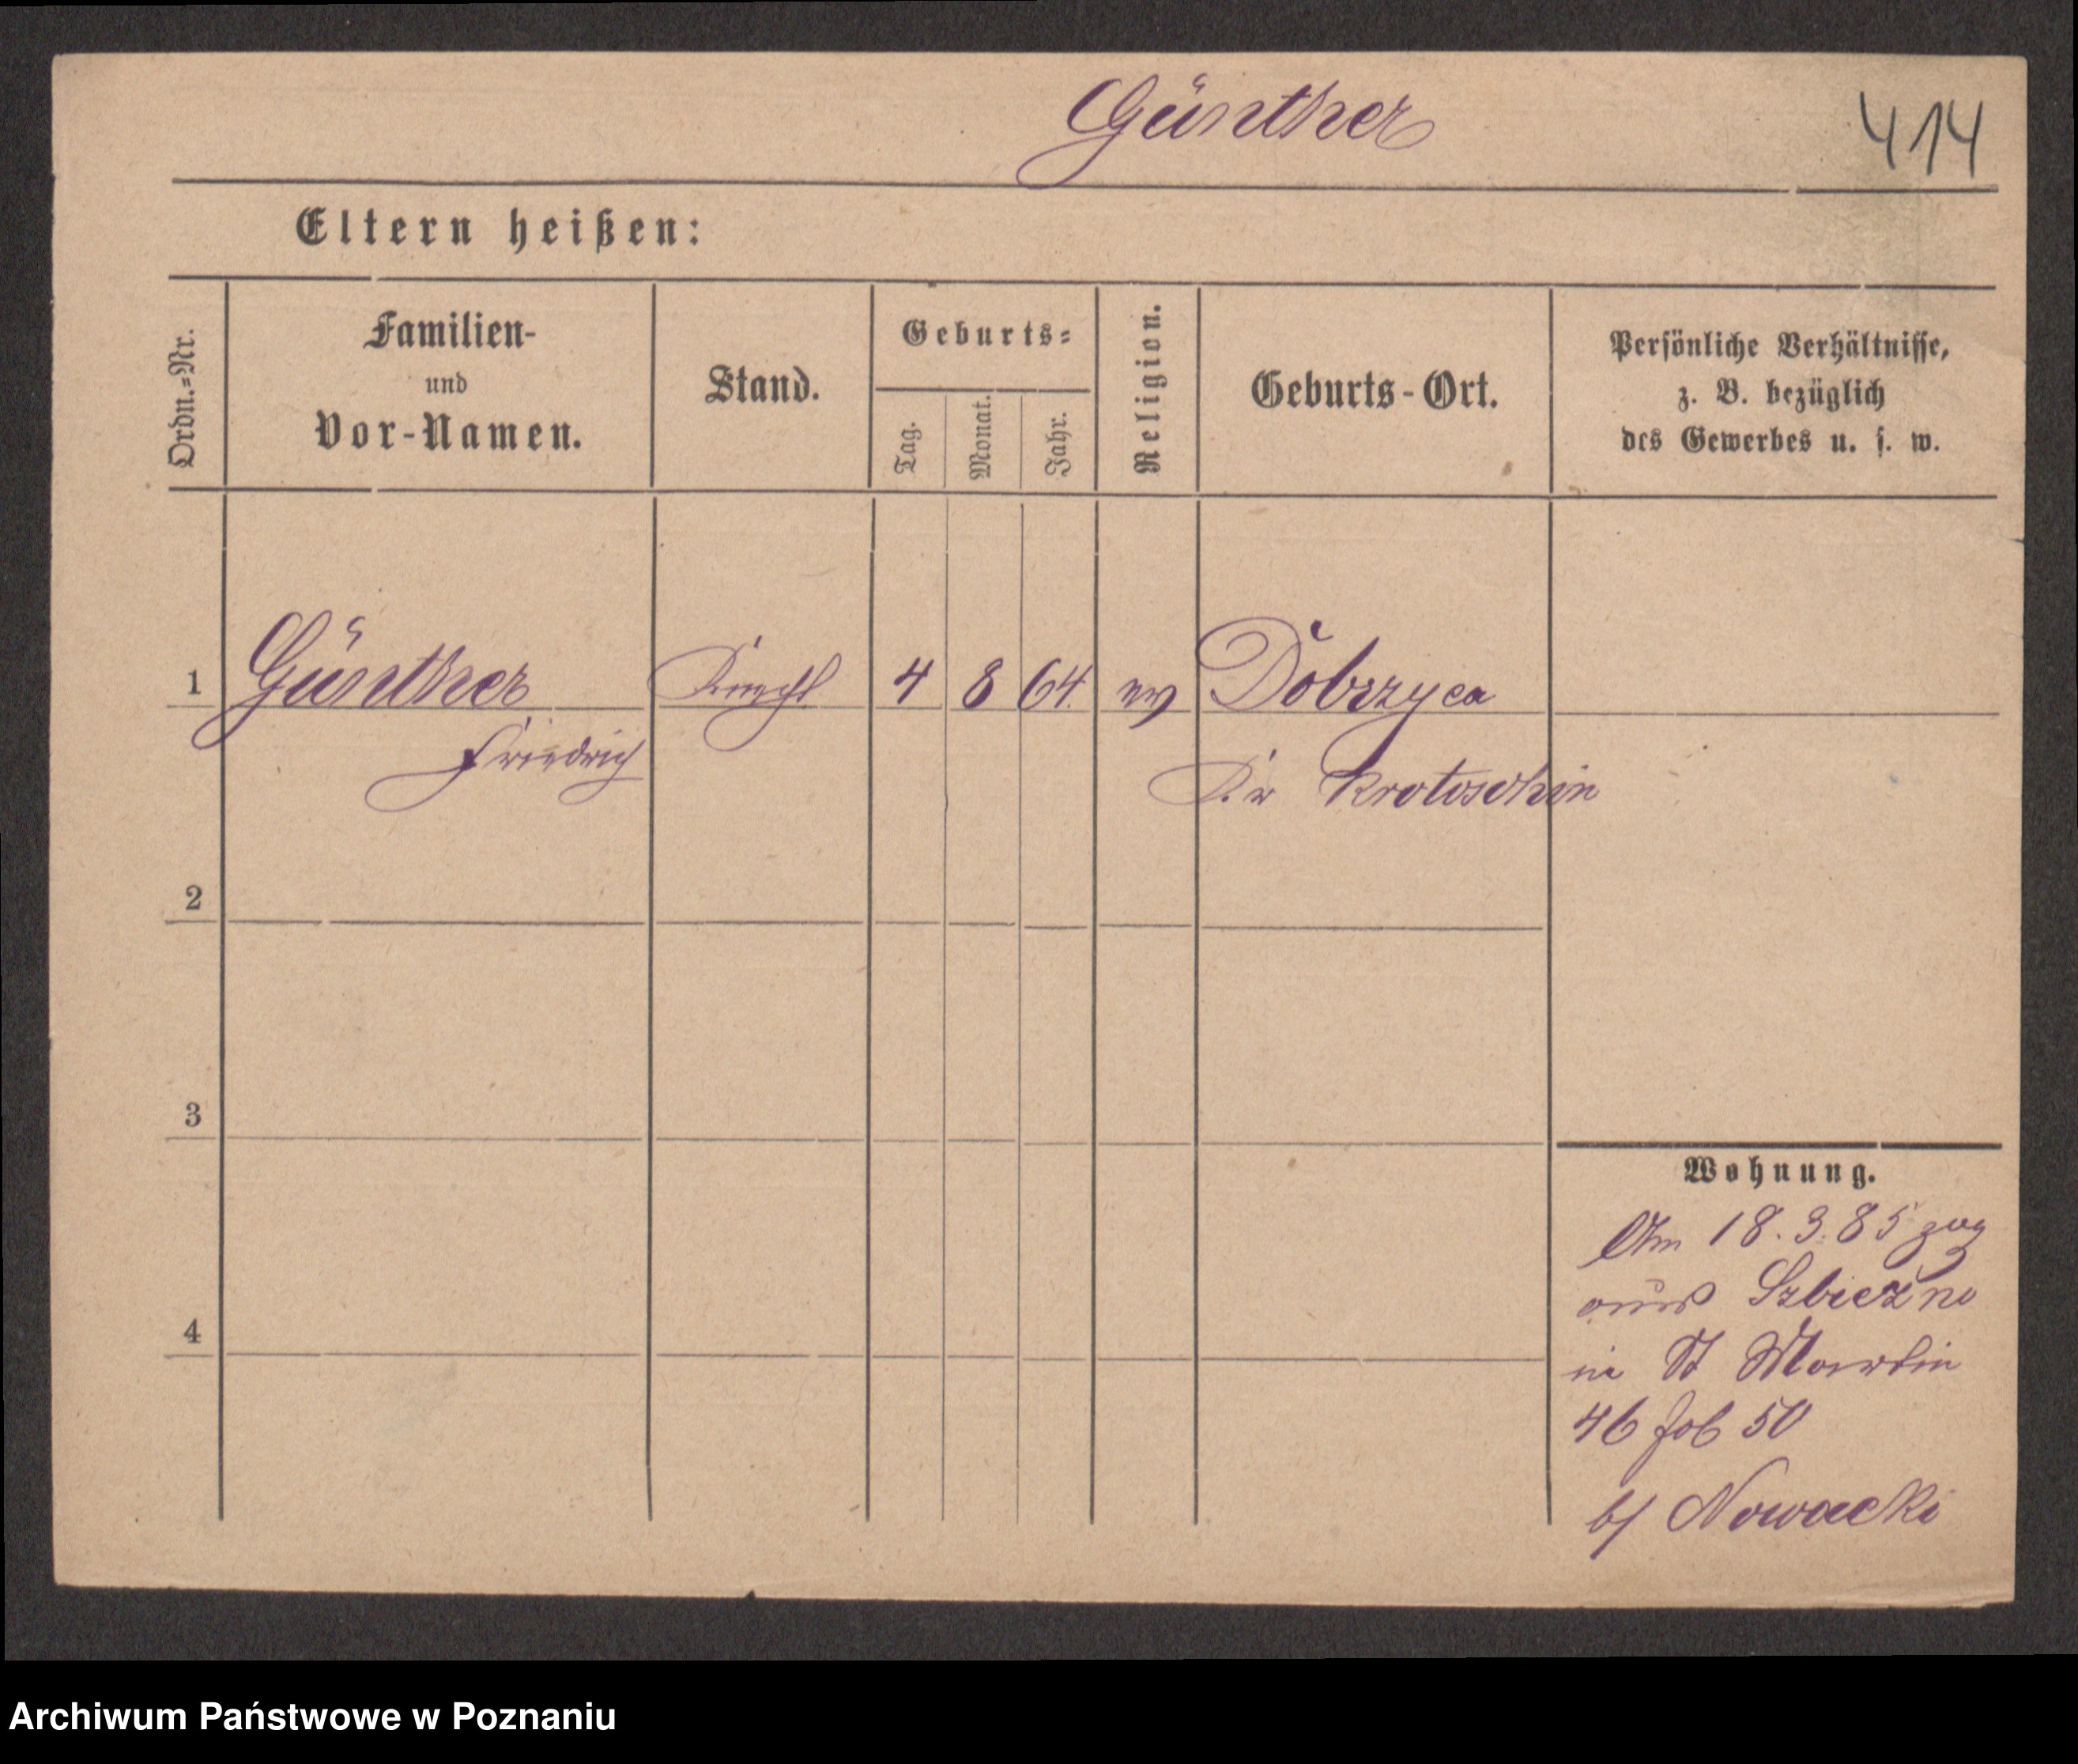 Günther
414
Eltern heißen:
Ordn.-Nr.
Familien-
und
Vor-Namen.
Stand.
Geburts-
Tag.
Monat.
Jahr.
Religion.
Geburts-Ort.
Persönliche Verhältnisse,
z. B. bezüglich
des Gewerbes u. s. w.
1 Günther Knecht 4 8 64. ev Dobrzyca
Friedrich
Kr Krotoschin
2
3
4
Wohnung.
Am 18.3.85 zug
aus
in St Martin
46 fol 50
b/ Nowacki
Archiwum Państwowe w Poznaniu